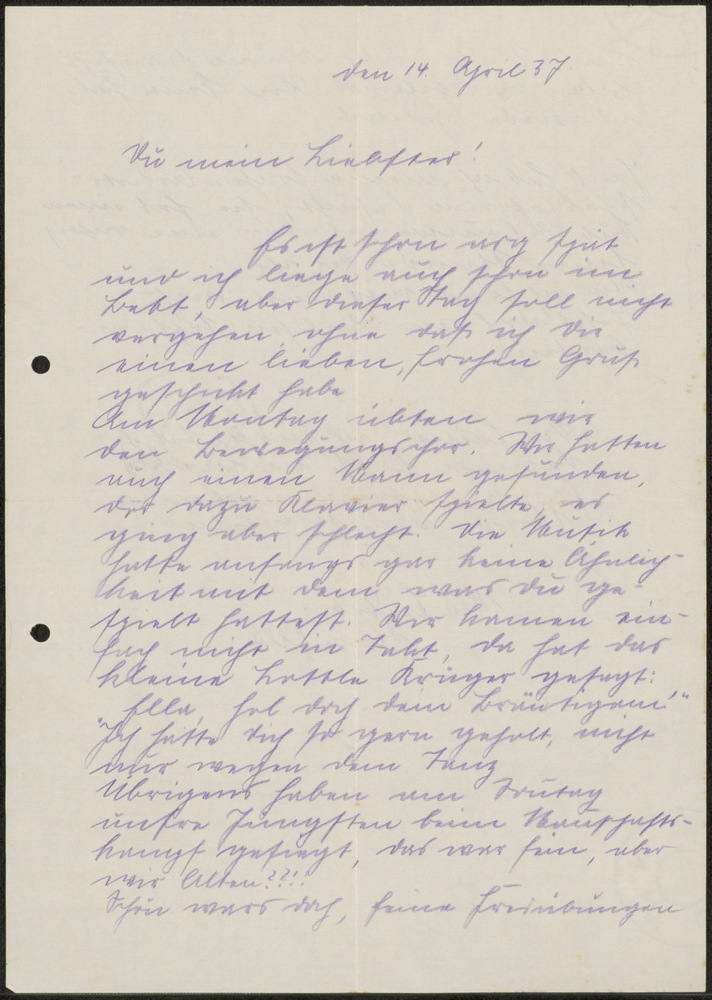 den 14. April 37.
Du mein Liebster!
Es ist schon arg spät
und ich liege auch schon im
Bett, aber dieser Tag soll nicht
vergehen, ohne daß ich Dir
einen lieben, frohen Gruß
geschickt habe
Am Montag übten wir
den Bewegungschor. Wir hatten
auch einen Mann gefunden,
der dazu Klavier spielte, es
ging aber schlecht. Die Musik
hatte anfangs gar keine Ähnlich-
keit mit dem was Du ge-
spielt hattest. Wir kamen ein-
fach nicht in Takt, da hat das
kleine Lottle Krüger gesagt:
"Ella, hol doch dein Bräutigam!"
Ich hätte Dich so gern geholt, nicht
nur wegen dem Tanz
Übrigens haben am Sontag
unsre Jüngsten beim Manschafts-
kampf gesiegt, das war fein, aber
wir Alten??!!
Schön wars doch, feine Freiübungen